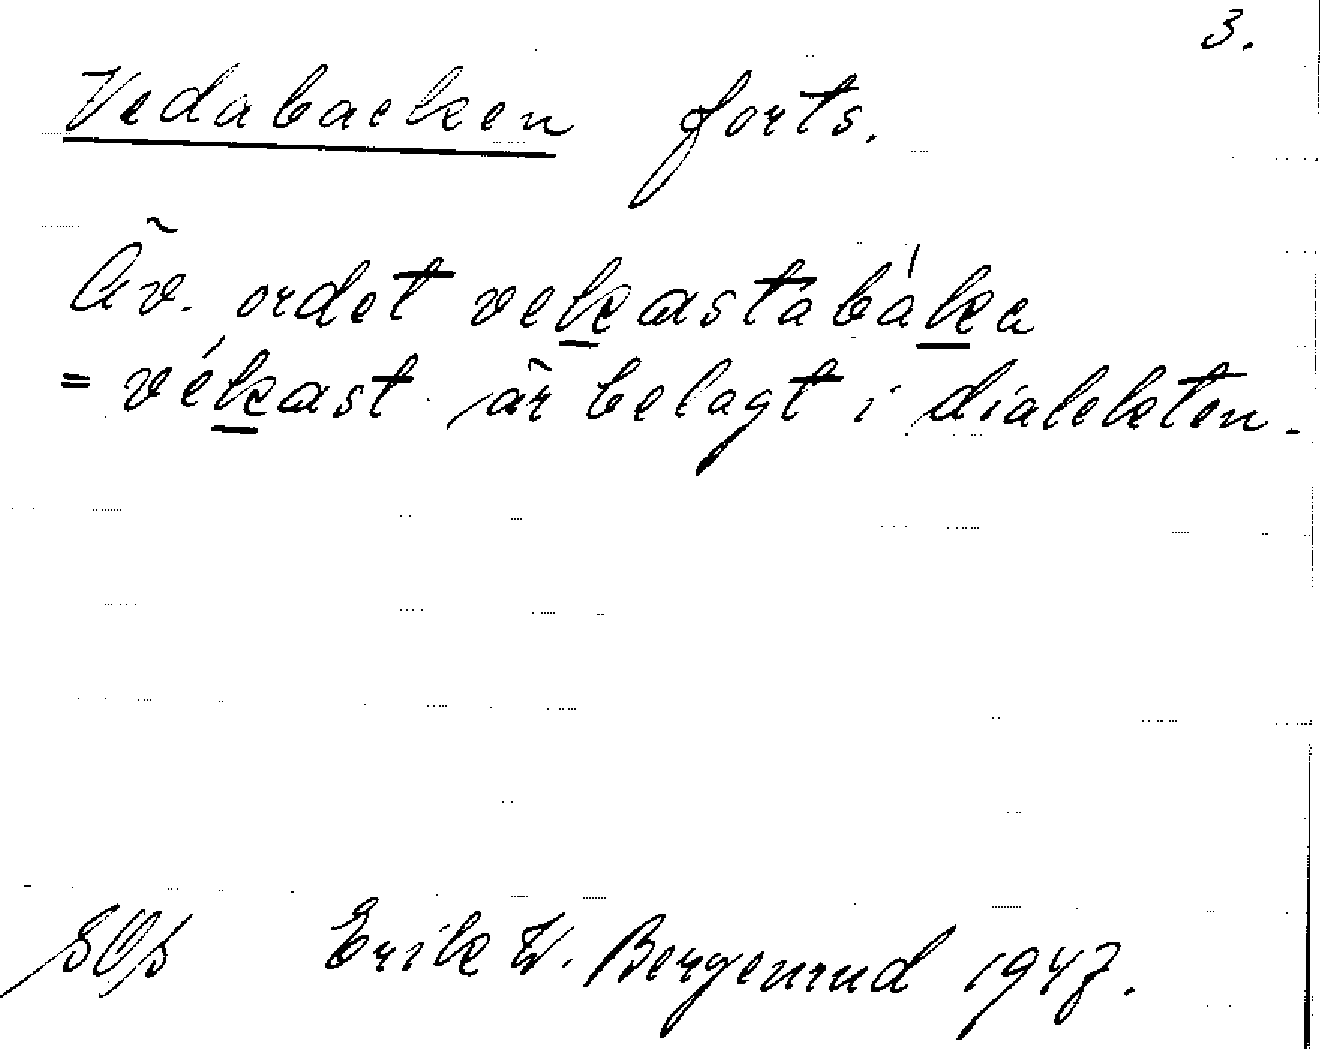 3.
Vedabacken forts.
Äv. ordet vekastabáka
= vékast är belagt i dialekten.
Erik W. Bergenrud 1947.